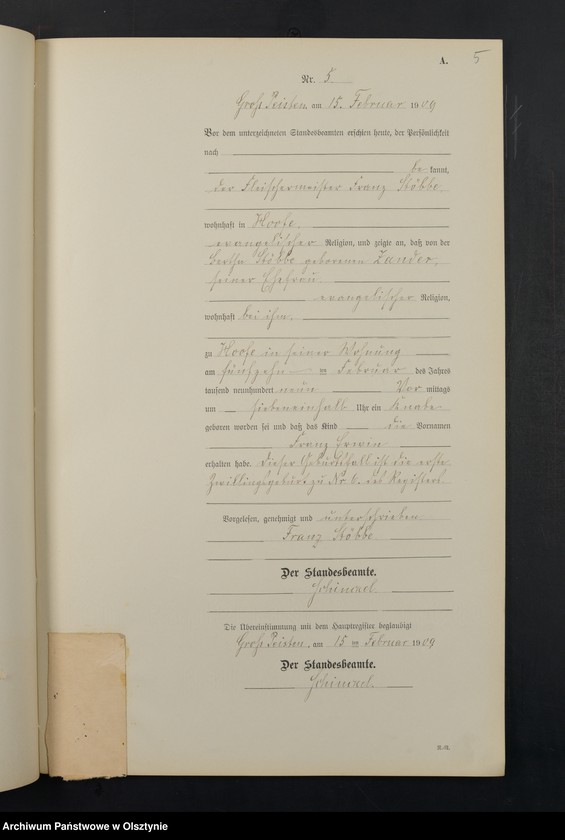 A. 5
Nr. 5
Groß Peisten, am 15. Februar 1909
Vor dem unterzeichneten Standesbeamten erschien heute, der Persönlichkeit
nach
be kannt,
der Fleischermeister Franz Stöbbe
wohnhaft in
evangelischer Religion, und zeigte an, daß von der
Bertha Stöbbe geborenen Zander,
seiner Ehefrau
evangelischer Religion,
wohnhaft bei ihm,
zu in seiner Wohnung
am fünfzehn ten Februar des Jahres
tausend neunhundert neun Vor mittags
um siebeneinhalb Uhr ein Knabe
geboren worden sei und daß das Kind die Vornamen
Franz Erwin
erhalten habe. Dieser Geburtsfall ist die erste
Zwillingsgeburt zu Nr. 6. des Registers
Vorgelesen, genehmigt und unterschrieben
Franz Stöbbe
Der Standesbeamte.
Die Übereinstimmung mit dem Hauptregister beglaubigt
Groß Peisten, am 15 ten Februar 1909
Der Standesbeamte.
Archiwum Państwowe w Olsztynie